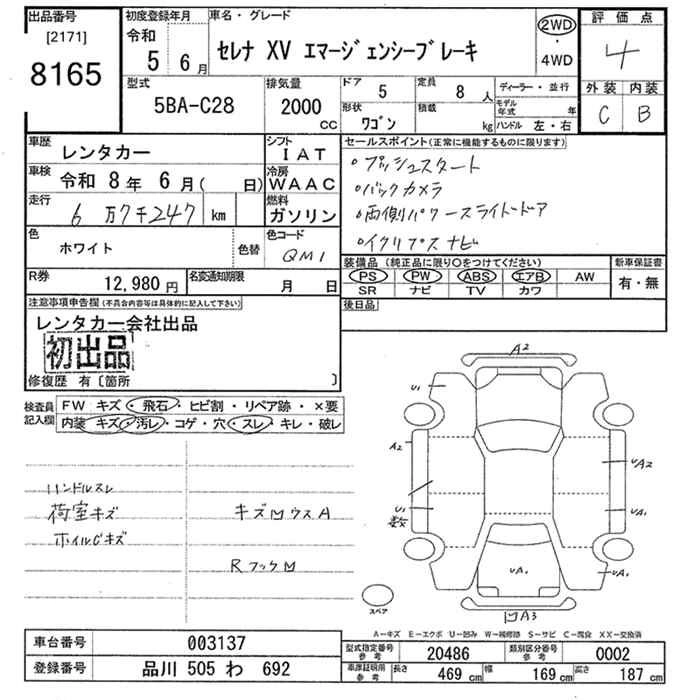 出品番号
[2171]
8165
初度登録年月
令和
5 6月
車名・グレード
セレナ XV エマージェンシーブレーキ
2WD
・
4WD
評価点
4
外装 内装
C B
型式
5BA-C28
排気量
2000
CC
ドア
5
定員
8人
形状
ワゴン
積載
kg
ディーラー・並行
モデル年式 年
ハンドル 左・右
車歴
レンタカー
シフト
IAT
車検
令和 8年 6月( 日)
冷房
WAAC
走行
6万7千247 km
燃料
ガソリン
色
ホワイト
色替
色コード
QM1
R券
12,980円
名変通知期限
月 日
セールスポイント(正常に機能するものに限ります)
・プッシュスタート
・バックカメラ
・両側パワースライドドア
・イクリプスナビ
装備品(純正品に限り○をつけてください)
PS PW ABS エアB AW
SR ナビ TV カワ
新車保証書
有・無
後日品
注意事項申告欄(不具合内容等は具体的に記入して下さい)
レンタカー会社出品
初出品
修復歴 有〔箇所 〕
検査員記入欄
FW キズ・飛石・ヒビ割・リペア跡・×要
内装 キズ・汚レ・コゲ・穴・スレ・キレ・破レ
ハンドルスレ
荷室キズ
ホイルCキズ
キズ凹ウスA
Rフック凹
A2
U1
A2
UA2
U1
数
UA1
UA1
UA1
凹A3
スペア
A－キズ E－エクボ U－凹み W－補修跡 S－サビ C－腐食 XX－交換済
車台番号
003137
登録番号
品川 505 わ 692
型式指定番号
参考
20486
類別区分番号
参考
0002
車庫証明用
参考
長さ
469 cm
幅
169 cm
高さ
187 cm